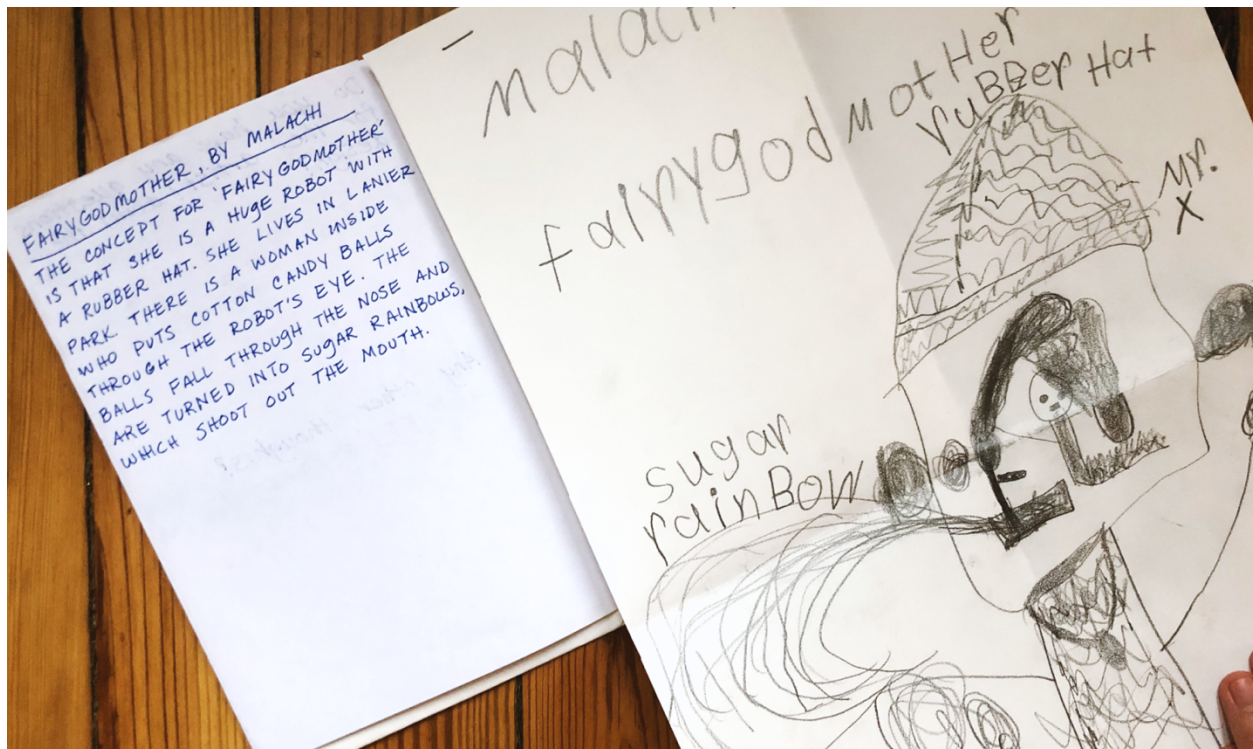 FAIRYGODMOTHER, BY MALACHI
THE CONCEPT FOR 'FAIRYGODMOTHER'
IS THAT SHE IS A HUGE ROBOT WITH
A RUBBER HAT. SHE LIVES IN LANIER
PARK. THERE IS A WOMAN INSIDE
WHO PUTS COTTON CANDY BALLS
THROUGH THE ROBOT'S EYE. THE
BALLS FALL THROUGH THE NOSE AND
ARE TURNED INTO SUGAR RAINBOWS,
WHICH SHOOT OUT THE MOUTH.
fairygodmotHer
ruBBer Hat
Mr.
X
sugar
rainBow